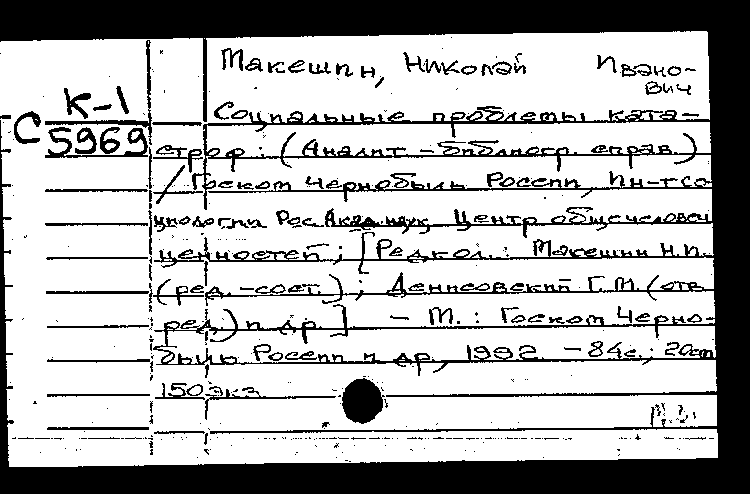 Макешин, Николай Ивано-
вич
К-1
С 5969
Социальные проблемы ката-
строф : (Аналит.-библиогр. справ.)
/ Госком Чернобыль России, Ин-т со-
циологии Рос. Акад. наук, Центр общечеловеч.
ценностей ; [Редкол.: Макешин Н.И.
(ред.-сост.) ; Денисовский Г.М. (отв.
ред.) и др.] - М. : Госком Черно-
быль России и др., 1992. - 84с.; 20см
150 экз.